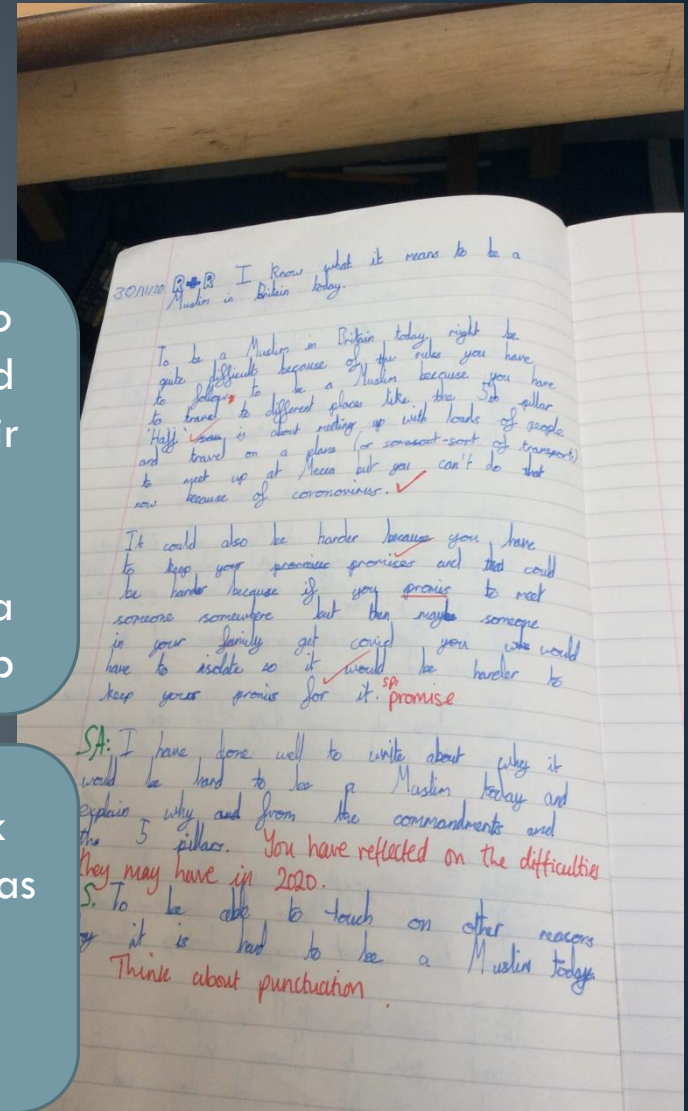 o
d
ir
a
o
k
as
30/11/20 R+R I know what it means to be a
Muslim in Britain today.
To be a Muslim in Britain today might be
quite difficult because of the rules you have
to follow, to be a Muslim because you have
to travel to different places like the 5th pillar
'Hajj' is about meeting up with loads of people
and travel on a plane (or sort of transport)
to meet up at Mecca but you can't do that
now because of coronovirus.
It could also be harder because you have
to keep your promises and that could
be harder because if you promis to meet
someone somewhere but then maybe someone
in your family get covid you would
have to isolate so it would be harder to
keep your promis for it. sp. promise
SA: I have done well to write about why it
would be hard to be a Muslim today and
explain why and from the commandments and
the 5 pillars. You have reflected on the difficulties
they may have in 2020.
S. To be able to touch on other reasons
it is hard to be a Muslim today.
Think about punctuation.